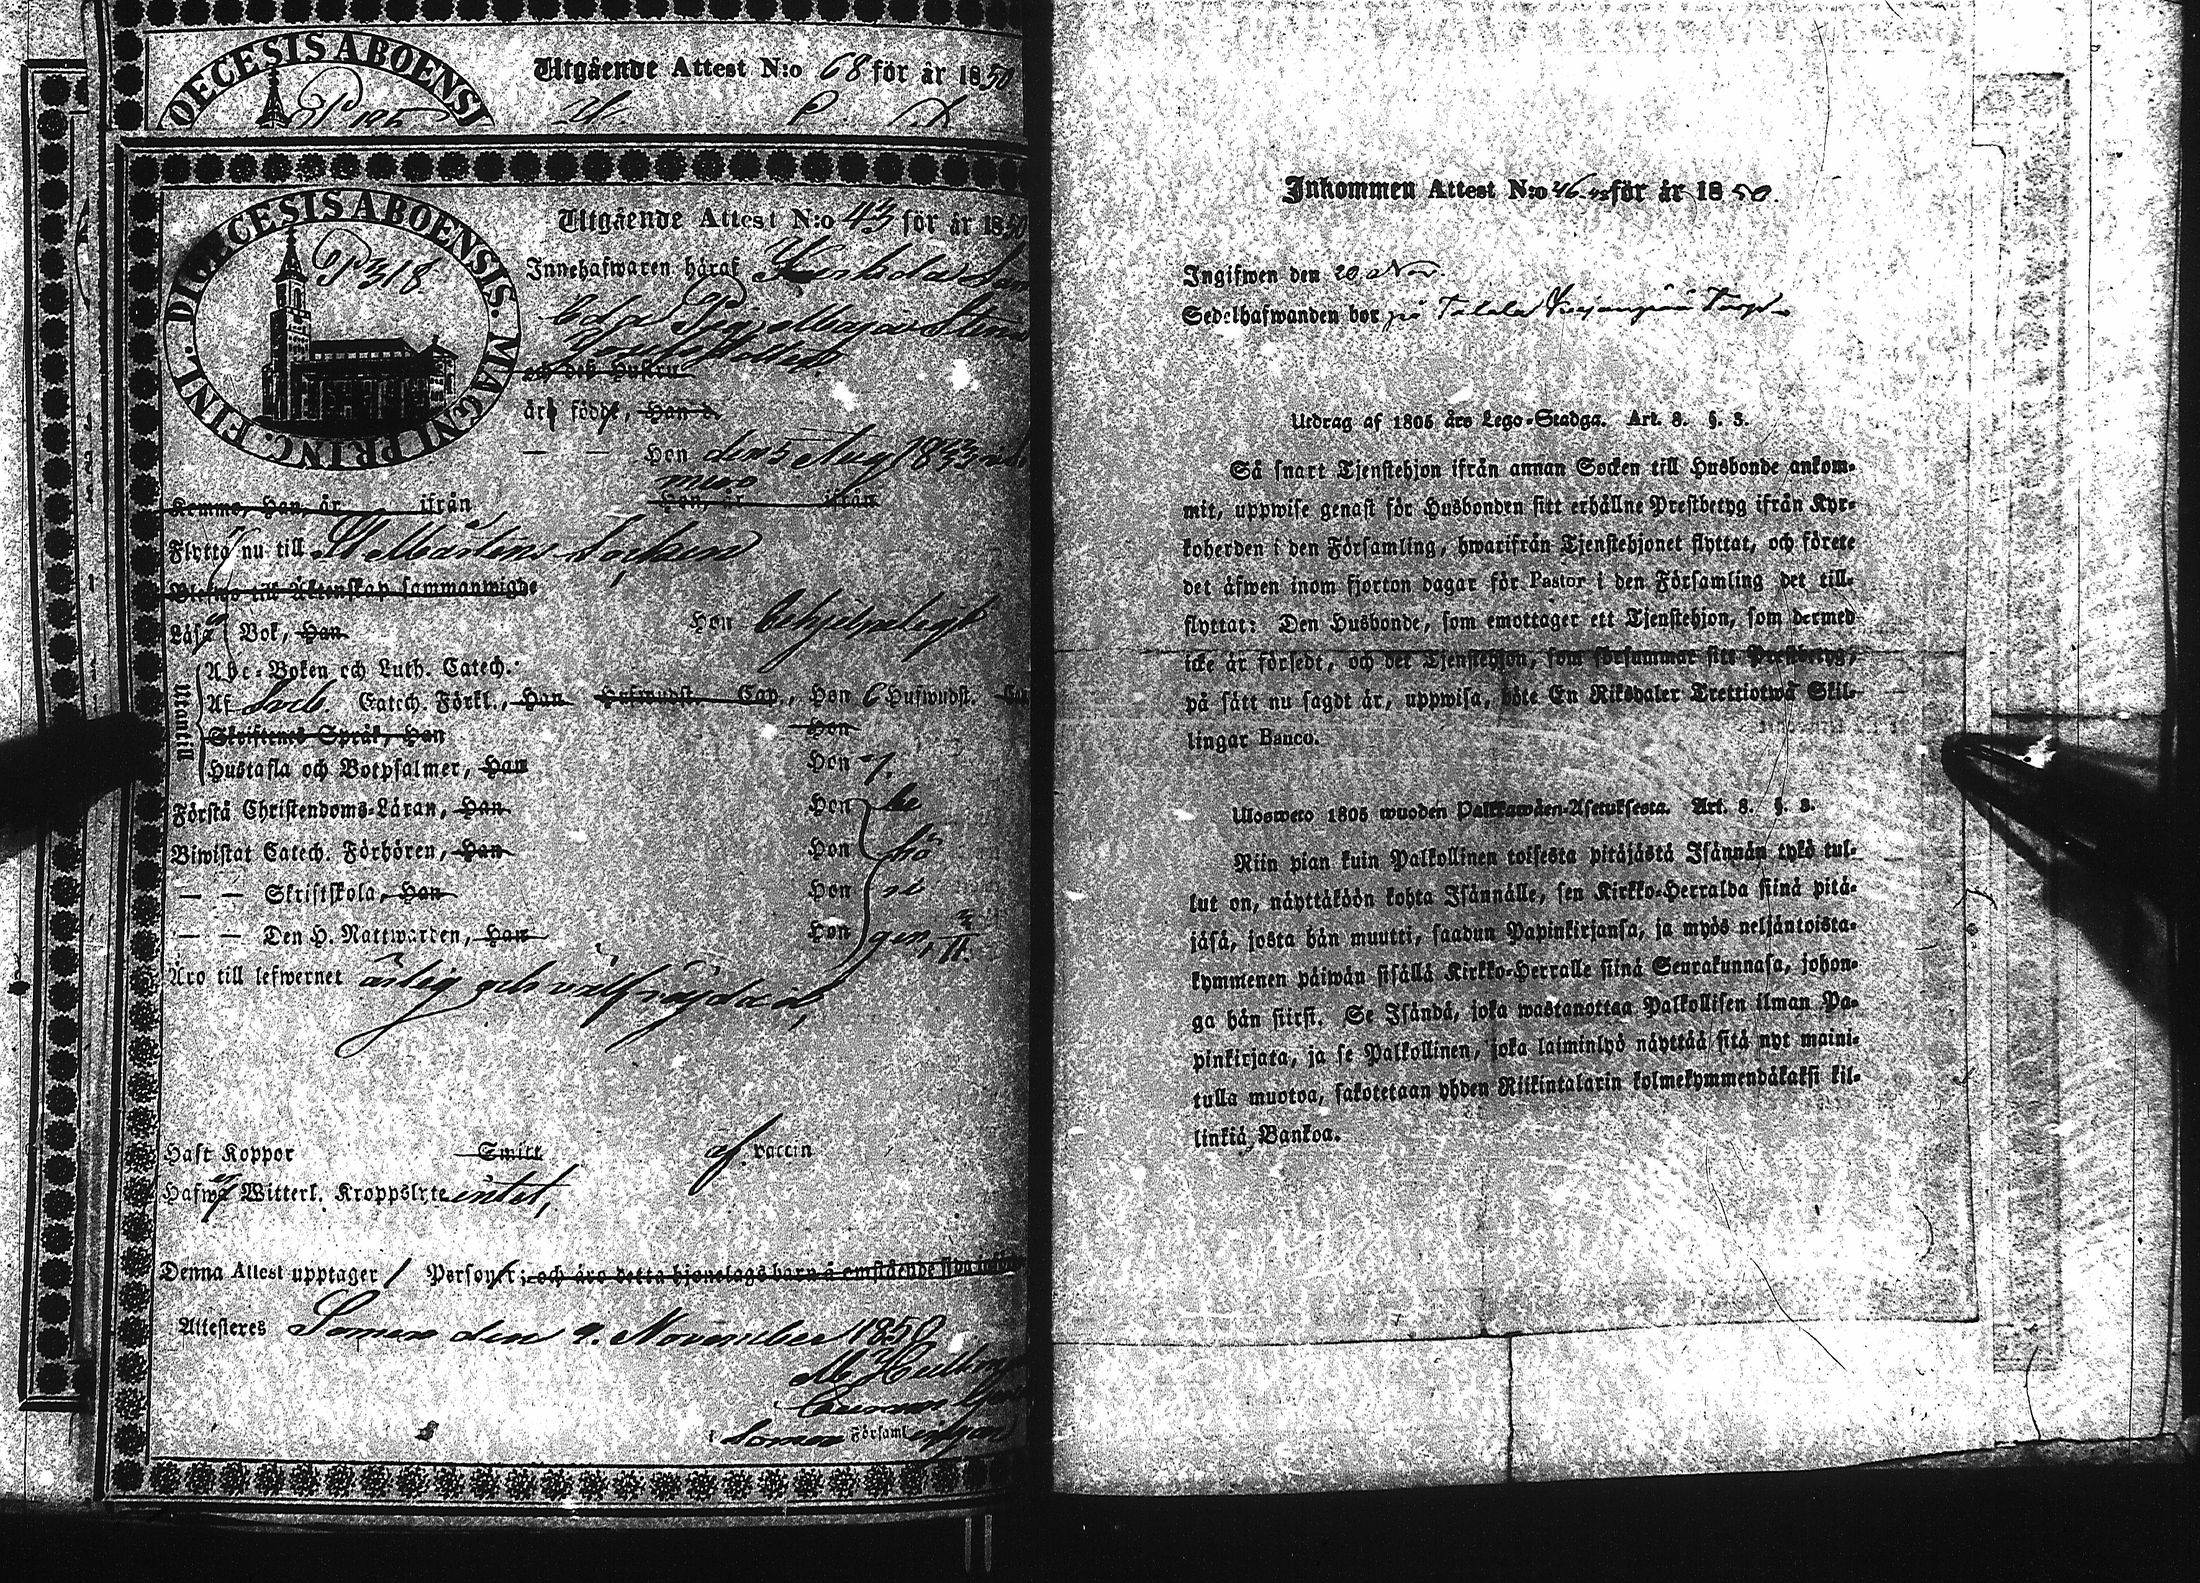 DIOECESIS ABOENSI
Utgående Attest N:o 68 för år 1850
DIOECESIS ABOENSIS. MAGNI PRINC. FINL.
Utgående Attest N:o 43 för år 1850
Innehafwaren häraf
och des Hustru
är född, Han d.
— — Hon den 5 Aug 1833
Kommo, Han, år ifrån Hon, år ifrån
Flytta nu till St Mårtens Socken
Blefwo till Äktenskap sammanwigde
Läsa Bok, Han Hon behjelpeligt
Utantill
Abc-Boken och Luth. Catech.
Af Catech. Förkl., Han Hufwudst. Cap., Hon 6 Hufwudst.
Skriftens Språk, Han Hon
Hustafla och Botpsalmer, Han Hon
Förstå Christendoms-Läran, Han Hon be
Biwistat Catech. Förhören, Han Hon hö
— — Skriftskola, Han Hon ri
— — Den H. Nattwarden, Han Hon gen,
Äro till lefwernet ärlig och wälfräjdad,
Haft Koppor Smitt af vaccin
Hafwa Witterl. Kroppslyte intet,
Denna Attest upptager 1 Personer; och äro detta hjonelags barn å omstående sida
Attesteres Somero den 9. November 1850
i Somero Församlingar
Inkommen Attest N:o 46 för år 1850.
Ingifwen den 20 Nov.
Sedelhafwanden bor på
Utdrag af 1805 års Lego-Stadga. Art. 8. §. 3.
Så snart Tjenstehjon ifrån annan Socken till Husbonde ankom-
mit, uppwise genast för Husbonden sitt erhållne Prestbetyg ifrån Kyr-
koherden i den Församling, hwarifrån Tjenstehjonet flyttat, och förete
det äfwen inom fjorton dagar för Pastor i den Församling det till-
flyttat: Den Husbonde, som emottager ett Tjenstehjon, som dermed
icke är försedt, och det Tjenstehjon, som försummar sitt Prestbetyg,
på sätt nu sagdt är, uppwisa, böte En Riksdaler Trettiotwå Skil-
lingar Banco.
Ulosweto 1805 wuoden Palkkawäen-Asetuksesta. Art. 8. §. 3.
Niin pian kuin Palkollinen toisesta pitäjästä Isännän tykö tul-
lut on, näyttäköön kohta Isännälle, sen Kirkko-Herralda siinä pitä-
jäsä, josta hän muutti, saadun Papinkirjansa, ja myös neljäntoista-
kymmenen päiwän sisällä Kirkko-Herralle siinä Seurakunnasa, johon-
ga hän siirsi. Se Isändä, joka wastanottaa Palkollisen ilman Pa-
pinkirjata, ja se Palkollinen, joka laiminlyö näyttää sitä nyt maini-
tulla muotoa, sakotetaan yhden Riikintalarin kolmekymmendäkaksi kil-
linkiä Bankoa.